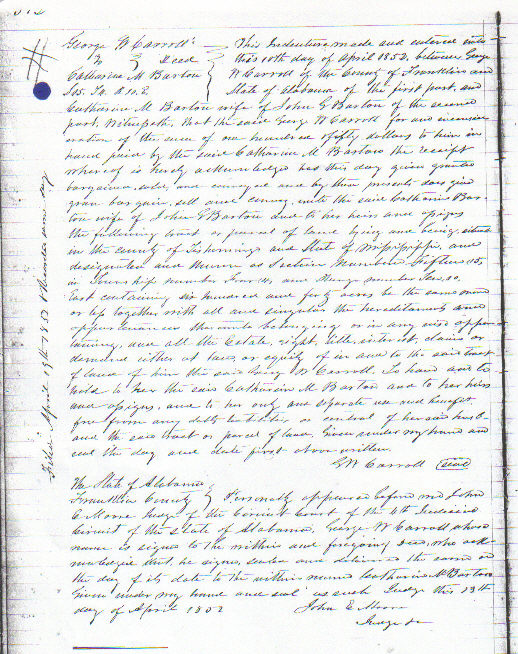 George W Carroll
To } Deed
Catharine M Barton
S 15. T 4. R 10. E
This Indenture made and entered into
this 10th day of April 1852, between George
W Carroll of the County of Franklin and
State of Alabama of the first part, and
Catharine M Barton wife of John G Barton of the second
part, Witnesseth, that the said George W Carroll for and in consid
eration of the sum of one hundred & fifty dollars to him in
hand paid by the said Catharine M Barton the receipt
whereof is hereby acknowledged has this day given granted
bargained, sold, and conveyed and by these presents does give
grant bargain, sell and convey, unto the said Catharine Bar
ton wife of John G Barton and to her heirs and assigns
the following tract or parcel of land lying and being, situate
in the county of Tishomingo and State of Mississippi, and
designated and known as Section Number Fifteen, 15,
in Township number Four, 4, and Range number Ten, 10.
East containing six hundred and forty acres be the same more
or less together with all and singular the hereditaments and
appurtenances thereunto belonging or in any wise apper
taining, and all the Estate, right, title, interest, claim or
demand either at law, or equity of in and to the said tract
of land of him the said George W Carroll. To have and to
hold to her the said Catharine M Barton and to her heirs
and assigns, and to her only and separate use and benefit,
free from any debts liabilities or control of her said husb
and the said tract or parcel of land, Given under my hand and
seal the day and date first above written.
G W Carroll (seal)
The State of Alabama
Franklin County } Personally appeared before me John
E Moore Judge of the Circuit Court of the 4th Judicial
Circuit of the State of Alabama, George W Carroll whose
name is signed to the within and foregoing Deed, who ack
nowledged that he signed sealed and delivered the same on
the day of its date to the within named Catharine M Barton
Given under my hand and seal as such Judge this 13th
day of April 1852
John E. Moore
Judge &c
Filed April 19th 1852 & Recorded same day